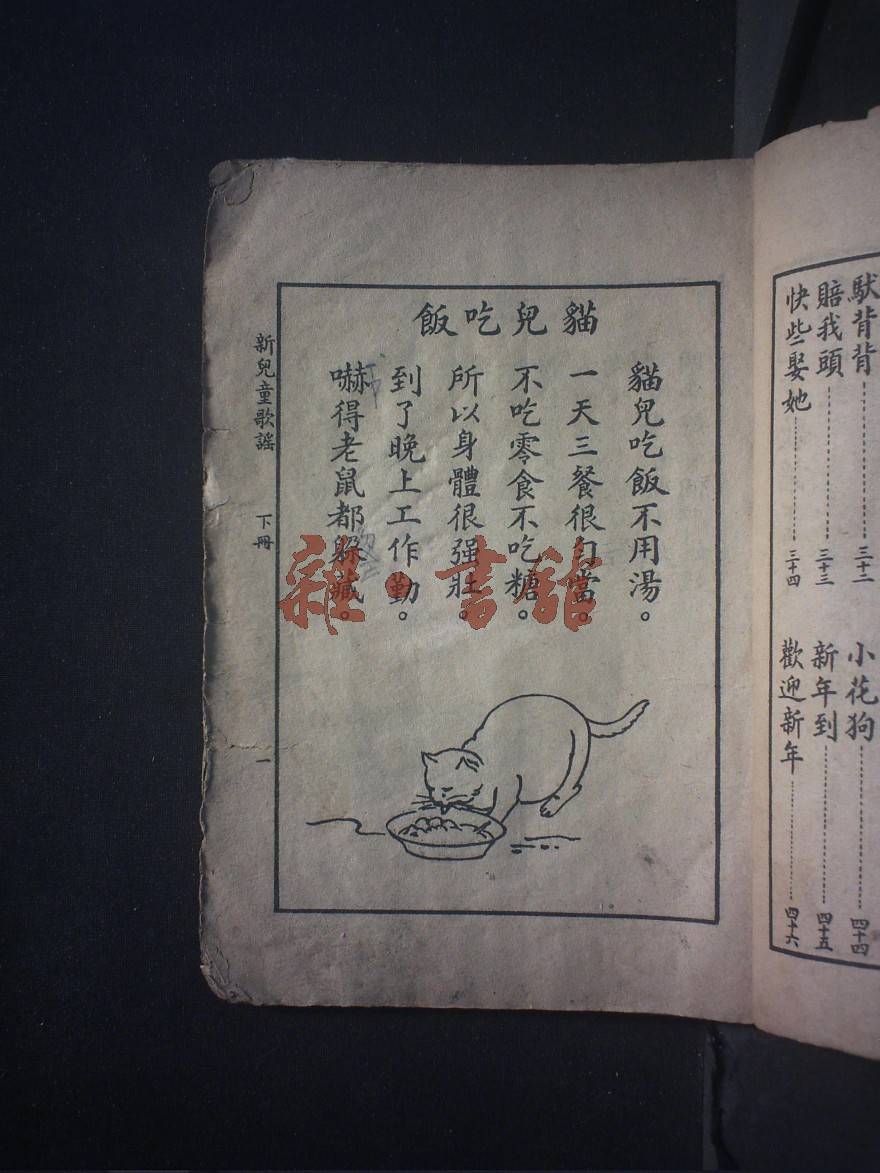 馱背背 三十二
賠我頭 三十三
快些娶她 三十四
小花狗 四十四
新年到 四十五
歡迎新年 四十六
貓兒吃飯
貓兒吃飯不用湯。
一天三餐很勻當。
不吃零食不吃糖。
所以身體很强壯。
到了晚上工作勤。
嚇得老鼠都躱藏。
新兒童歌謠 下冊 一
雜·書館